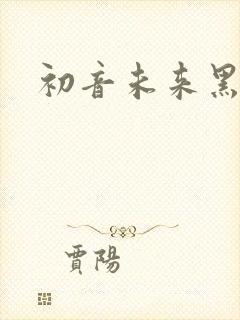 初音未来黑
賈陽